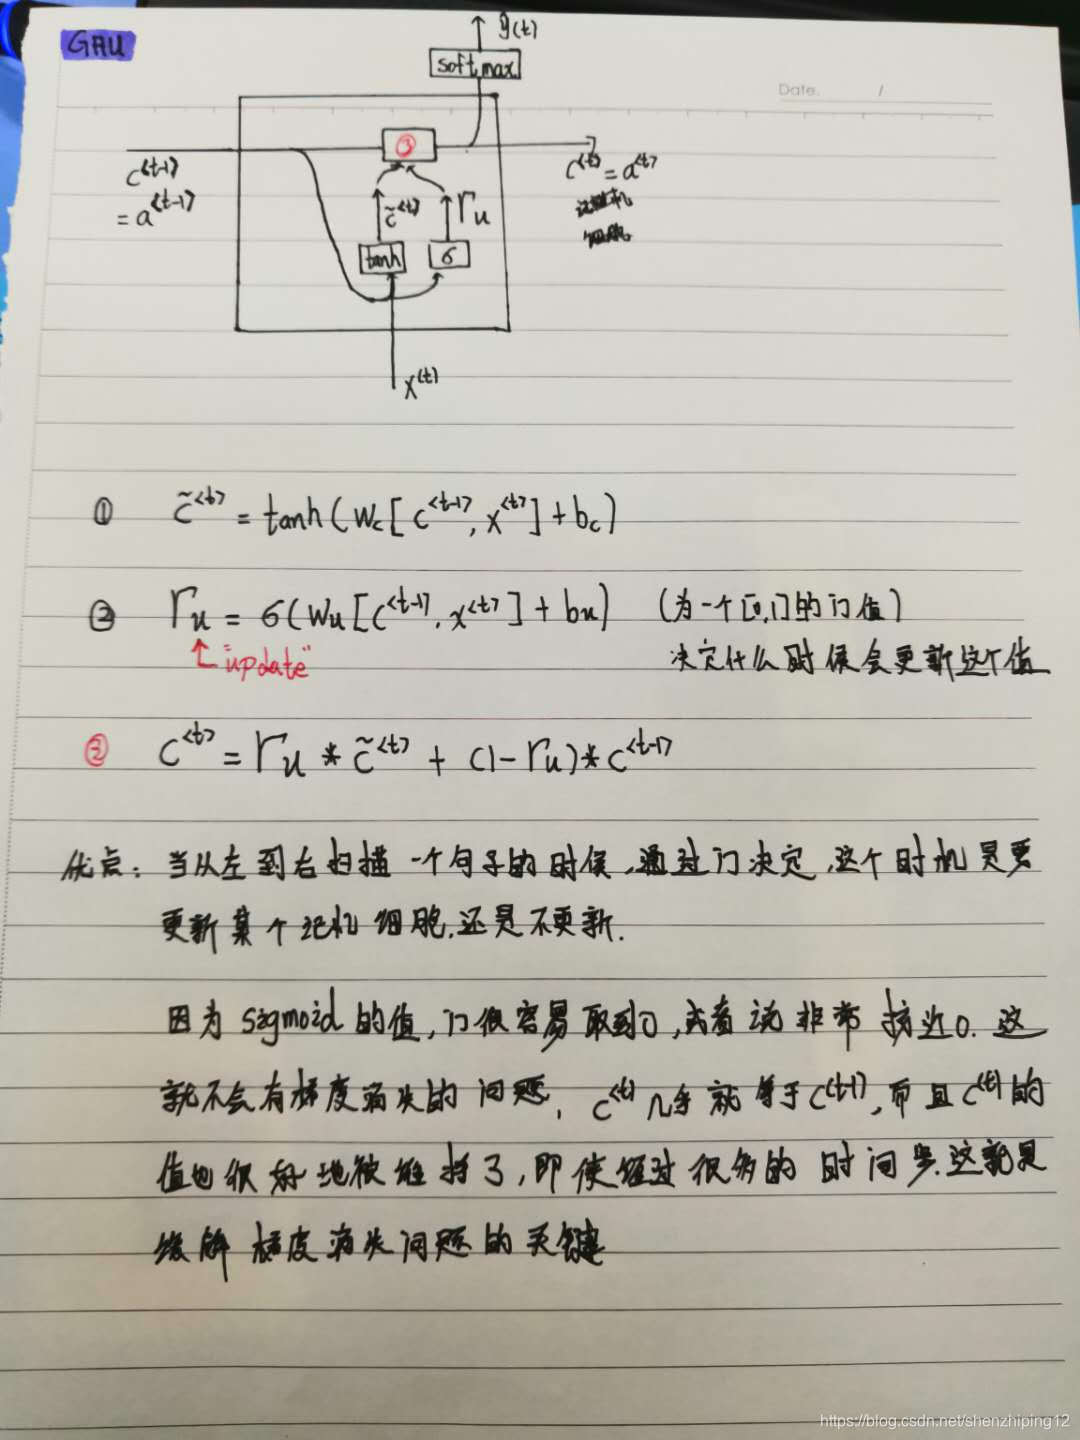 GRU
y⟨t⟩
softmax
Date. /
③
c<t-1>
= a<t-1>
c<t> = a<t>
c̃<t>
Γu
记忆
细胞
tanh
σ
x<t>
① c̃<t> = tanh(Wc[c<t-1>, x<t>] + bc)
② Γu = σ(Wu[c<t-1>, x<t>] + bu) (为一个[0,1]的门值)
"update" 决定什么时候会更新这个值
③ c<t> = Γu * c̃<t> + (1-Γu)*c<t-1>
优点：当从左到右扫描一个句子的时候，通过门决定，这个时机是要
更新某个记忆细胞，还是不更新.
因为sigmoid的值，门很容易取到0，或者说非常接近0. 这
就不会有梯度消失的问题，c<t>几乎就等于c<t-1>，而且c<t>的
值也很好地被维持了，即使经过很多的时间步.这就是
缓解梯度消失问题的关键
https://blog.csdn.net/shenzhiping12